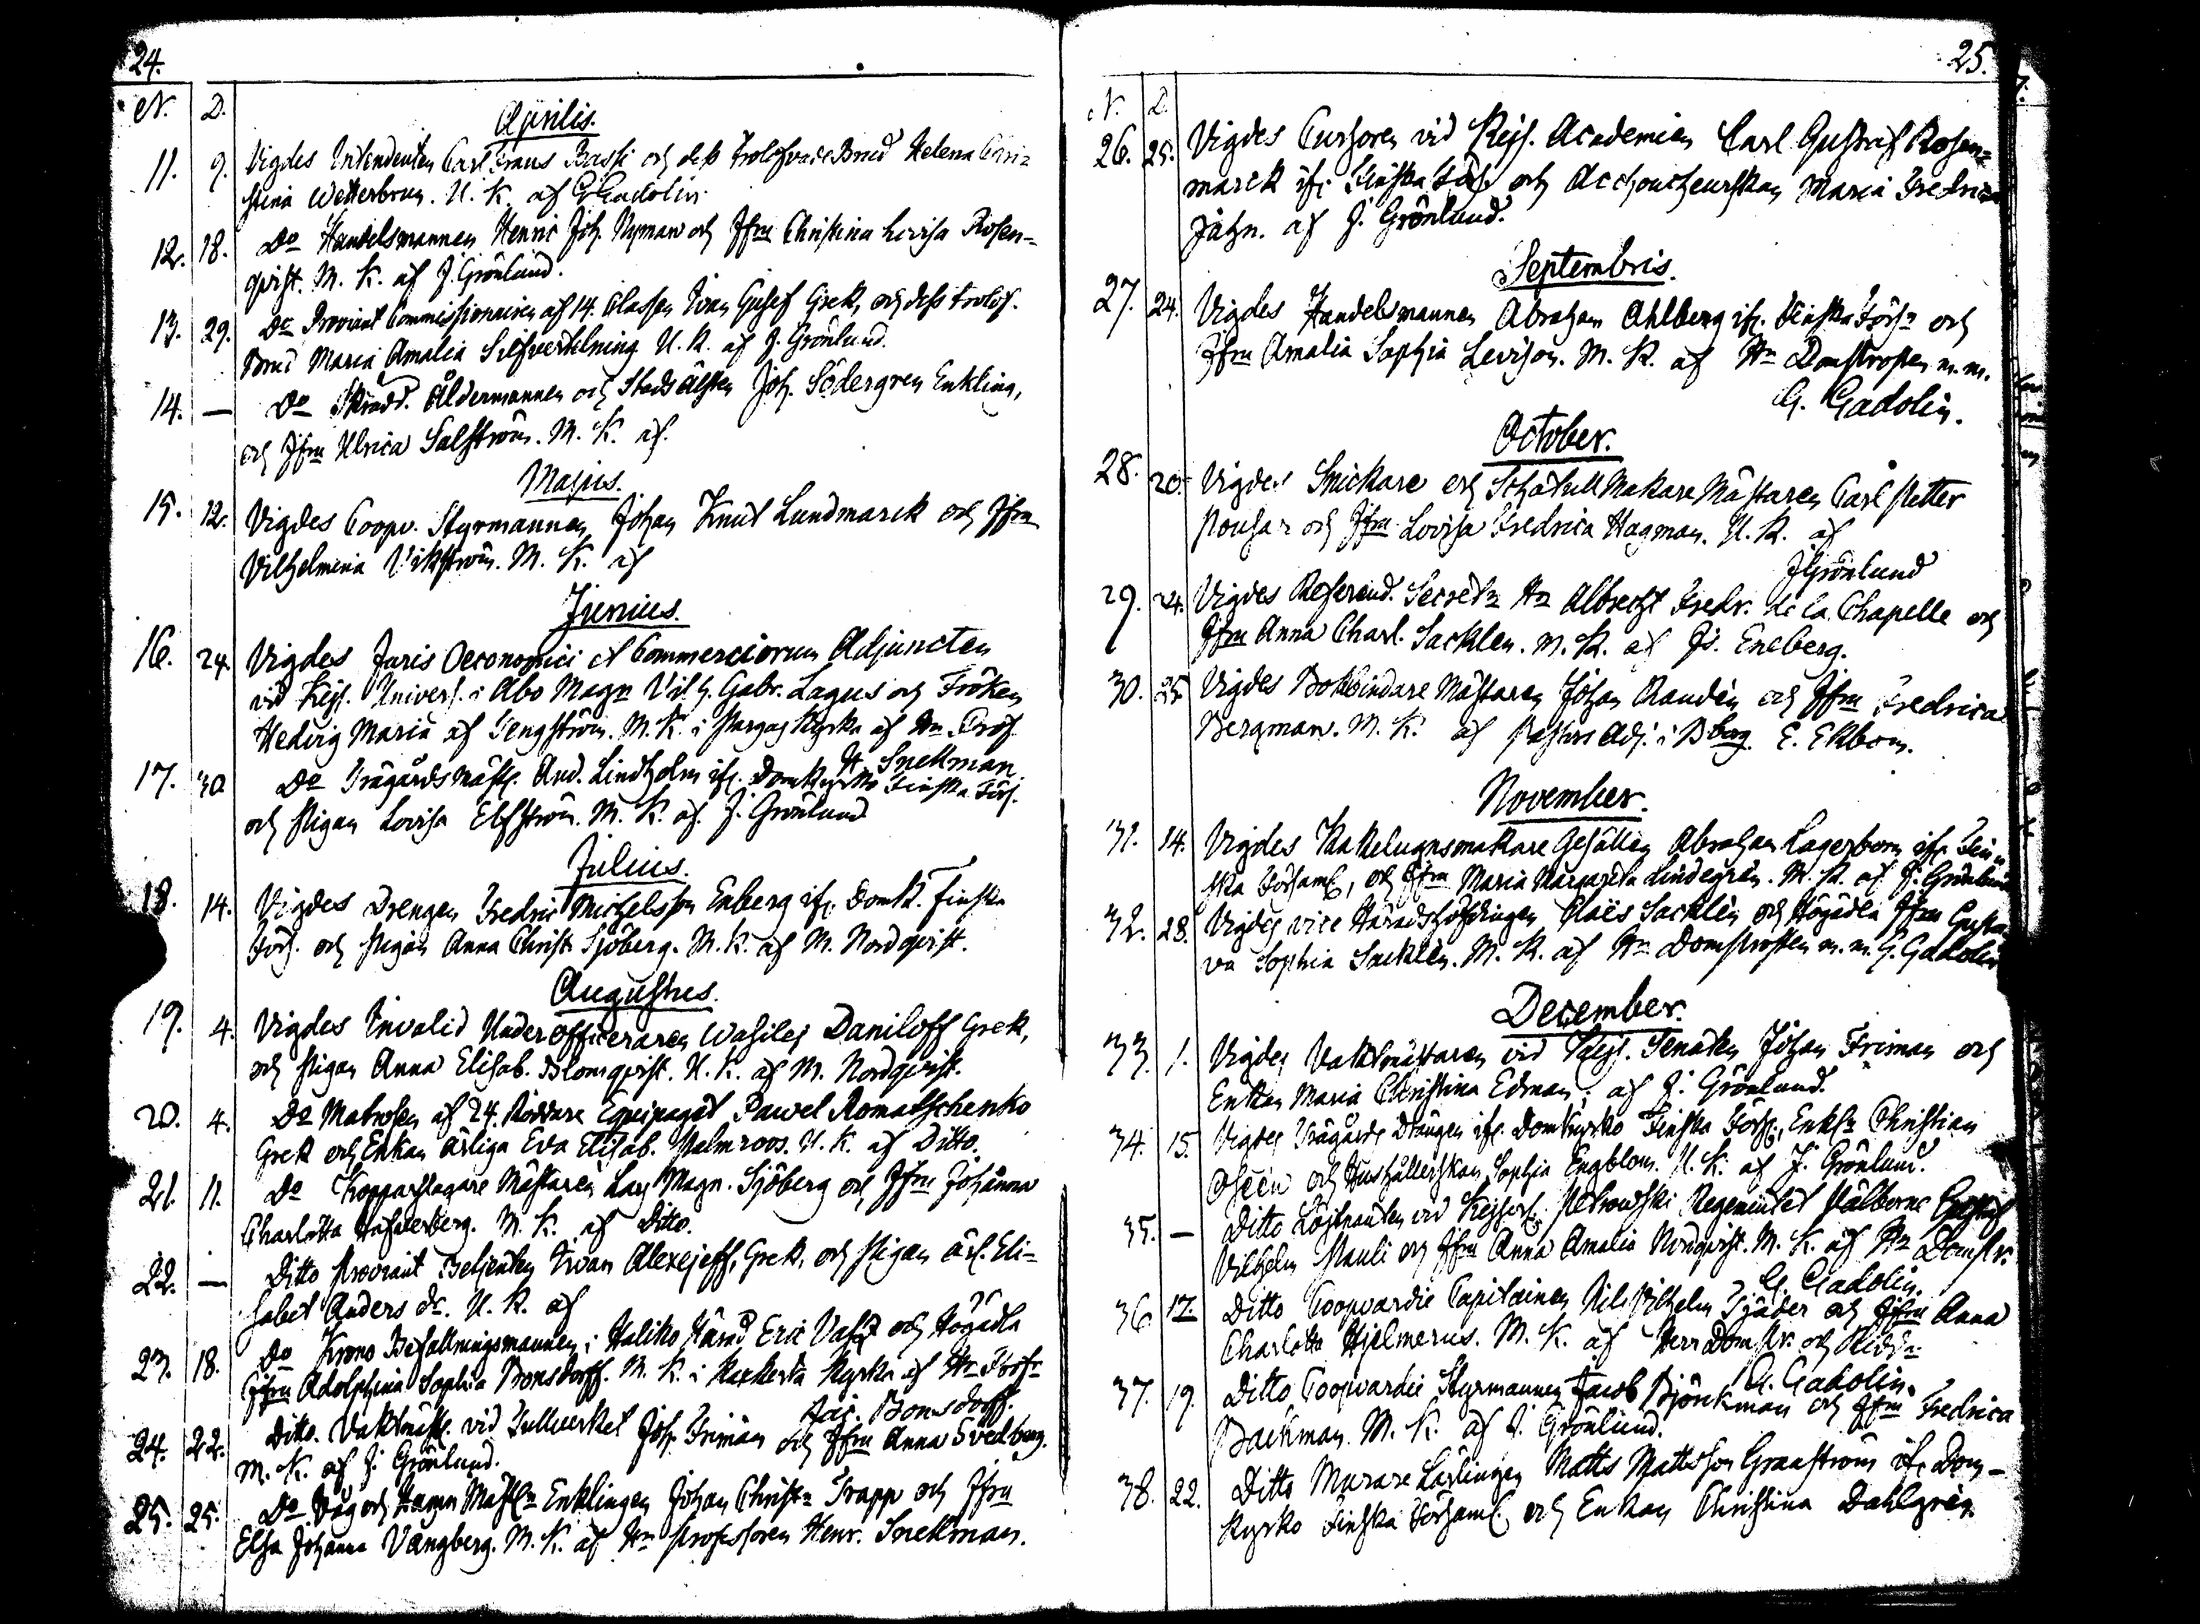 24.
N. D.
Aprilis.
11. 9. Vigdes Intendenten Carl Frans Bassi och dess Trolofvade Brud Helena Chri=
stina Wetterbrun. U. K. af G Gadolin.
12. 18. Do Handelsmannen Henric Joh. Nyman och Jfru Christina Lovisa Rosen=
qvist. M. K. af J. Grönlund.
13. 29. Do Proviant Commissionairen af 14. Classen Ivan Gusef Grek, och dess trolof.
Brud Maria Amalia Silfvertelning U. K. af J. Grönlund.
14. — Do Skrädd. Åldermannen och Stads älsten Joh. Södergren Enkling,
och Jfru Ulrica Salström. M. K. af.
Majus.
15. 12. Vigdes Coopv. Styrmannen Johan Knut Lundmarck och Jfru
Vilhelmina Vikström. M. K. af
Junius.
16. 24. Vigdes Juris Oeconomici et Commerciorum Adjuncten
vid Kejs. Univers. i Abo Magr Vilh. Gabr. Lagus och Fröken
Hedvig Maria af Tengström. M. K. i Pargas Kyrka af Hr Prof.
H Snellman
17. 30 Do Trägårdsmäst. And. Lindholm ifr. Domkyrko Finska Förs.
och Pigan Lovisa Elfström. M. K. af. J. Grönlund
Julius.
18. 14. Vigdes Drengen Fredric Michelsson Enberg ifr. Domk. finska
Förs. och Pigan Anna Christ. Sjöberg. M. K. af M. Nordqvist.
Augustus.
19. 4. Vigdes Invalid Underofficeraren Wasilej Daniloff Grek,
och Pigan Anna Elisab. Blomqvist. U. K. af M. Nordqvist.
20. 4. Do Matrosen af 24. Roddare Equipaget Pawel Romatschenko
Grek och Enkan ärliga Eva Elisab. Malmroos. U. K. af Ditto.
21. 11. Do Kopparslagare Mästaren Lars Magn. Sjöberg och Jfru Johanna
Charlotta M. K. af Ditto.
22. — Ditto Proviant Betjenten Ivan Alexejeff, Grek, och Pigan ärl. Eli=
sabet Anders dr. U. K. af
23. 18. Do Krono Befallningsmannen i Haliko Härad Eric och Högädla
Jfru Adolphina Sophia Bonsdorff. M. K. i Kyrka af Hr Prof
Jac. Bonsdorff.
24. 22. Ditto. Vaktmäst. vid Tullverket Joh. Friman och Jfru Anna Svedberg.
M. K. af J. Grönlund.
25. 25. Do Våg och Hamn Mäst. Enklingen Johan Christr Trapp och Jfru
Elsa Johanna Vangberg. M. K. af Hr Professoren Henr. Snellman.
25.
N. D.
26. 25. Vigdes Cursoren vid Kejs. Academien Carl Gustaf Rosen=
marck ifr. Finska Förs. och Acchoucheurskan Maria Fredrica
Jahn. af J. Grönlund.
Septembris.
27. 24. Vigdes Handelsmannen Abraham Ahlberg ifr. Finska Förs. och
Jfru Amalia Sophia Levison. M. K. af Hr Domprosten m. m.
G. Gadolin.
October.
28. 20. Vigdes Snickare och Schatull Makare Mästaren Carl Petter
Pousar och Jfru Lovisa Fredrica Hagman. U. K. af
J Grönlund
29. 24. Vigdes Referend. Secret. Hr Albrecht Fredr. de la Chapelle och
Jfru Anna Charl. Sacklen. M. K. af Js. Eneberg.
30. 25 Vigdes Bokbindare Mästaren Johan Randèn och Jfru Fredrica
Bergman. M. K. af Pastors Adj. i Bberg. E. Ekbom.
November.
31. 14. Vigdes Kakelugnsmakare Gesällen Abraham Lagerbom ifr. Fin=
ska Församl, och Jfru Maria Margareta Lindegren. M. K. af J. Grönlund
32. 28. Vigdes vice Häradshöfdingen Claës Sacklèn och Högädla Jfru Gusta
va Sophia Sacklèn. M. K. af Hr Domprosten m. m. G. Gadolin
December.
33. 1. Vigdes Vaktmästaren vid Kejs. Senaten Johan Friman och
Enkan Maria Christina Edman. af J. Grönlund.
34. 15. Vigdes Trägårds Drängen ifr. Domkyrko Finska Förs., Enkl. Christian
och Hushållerskan Sophia Engblom. U. K. af J. Grönlund.
35. — Ditto Löjtnanten vid Kejserl. Petrowski Regementet Välborne Gustaf
Vilhelm Pauli och Jfru Anna Amalia Nordqvist. M. K. af Hr Dompr.
G. Gadolin.
36. 17. Ditto Coopvardie Capitainen Nils Vilhelm Sjäder och Jfru Anna
Charlotta Hjelmerus. M. K. af Herr Dompr. och Ridd.
G. Gadolin.
37. 19. Ditto Coopvardie Styrmannen Jacob Björkman och Jfru Fredrica
Backman. M. K. af J. Grönlund.
38. 22. Ditto Murare Lärlingen Matts Mattsson Granström ifr. Dom-
kyrko Finska Församl. och Enkan Christina Dahlgrèn.